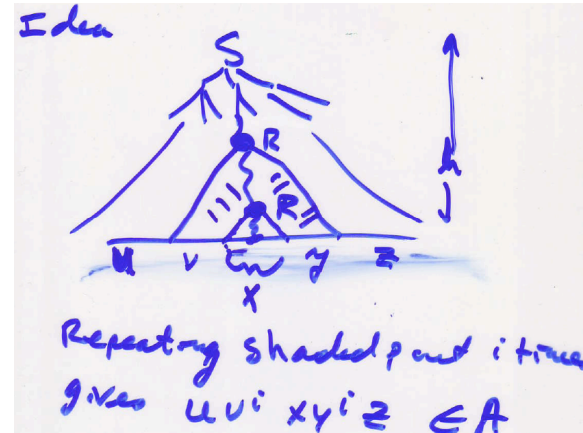 Idea
S
h
R
R
u v y z
x
Repeating shaded part i time
gives uvⁱ xyⁱ z ∈ A